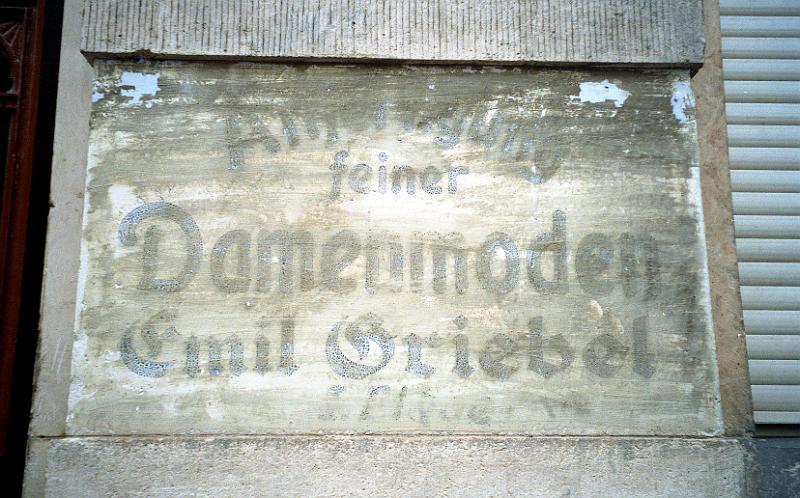 Anfertigung
feiner
Damenmoden
Emil Griebel